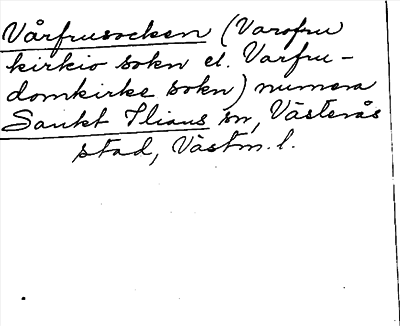 Vårfrusocken (Varofru
kirkio sokn el. Varfru-
domkirke sokn) numera
Sankt Ilians sn, Västerås
stad, Västm. l.